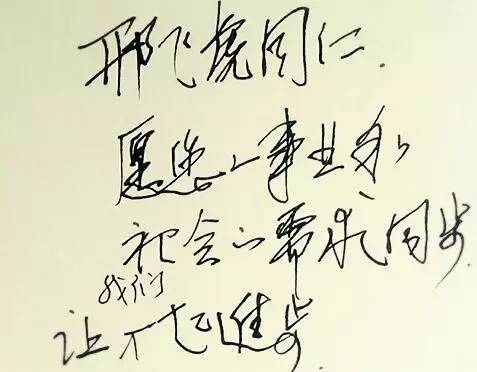 邢飞虎同仁.
愿您的事业和
社会的需求同步.
让我们一起進步